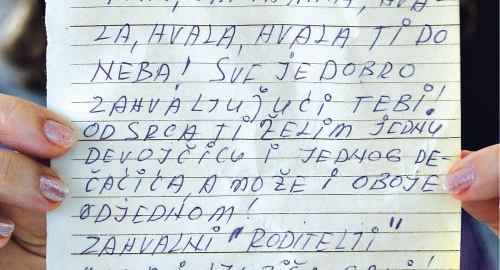 HVA-
LA, HVALA, HVALA TI DO
NEBA! SVE JE DOBRO
ZAHVALJUJUĆI TEBI!
OD SRCA TI ŽELIM JEDNU
DEVOJČICU I JEDNOG DE-
ČAČIĆA, A MOŽE I OBOJE
ODJEDNOM!
ZAHVALNI "RODITELJI"